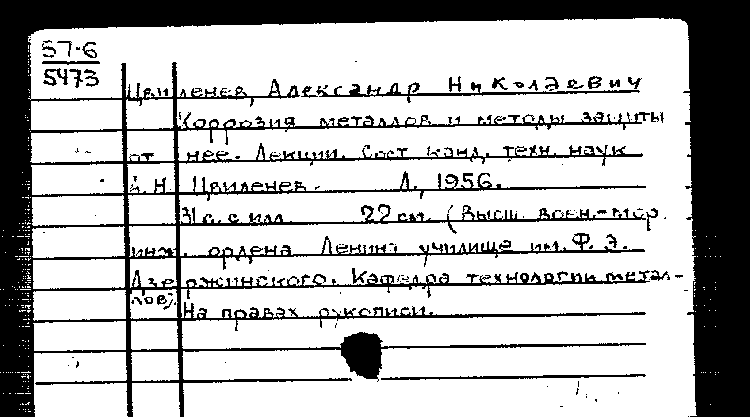 57-6
5473
Цвиленев, Александр Николаевич
Коррозия металлов и методы защиты
от нее. Лекции. Сост канд. техн. наук
А. Н. Цвиленев. Л., 1956.
31 с. с илл 22 см. (Высш. воен.-мор.
инж. ордена Ленина училище им. Ф. Э.
Дзержинского. Кафедра технологии метал-
лов).
На правах рукописи.